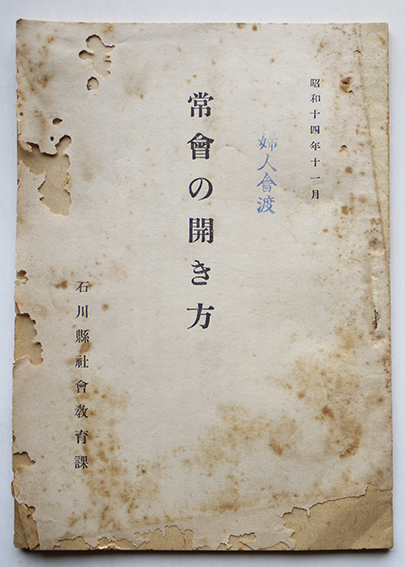 昭和十四年十一月
婦人會渡
常會の開き方
石川縣社會教育課